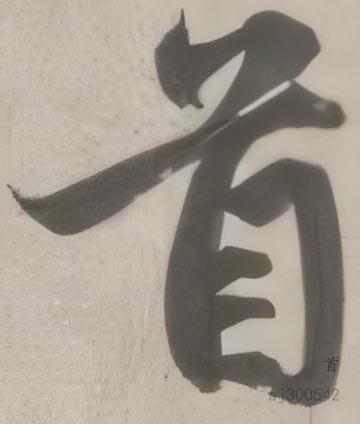 首
首
aj300542